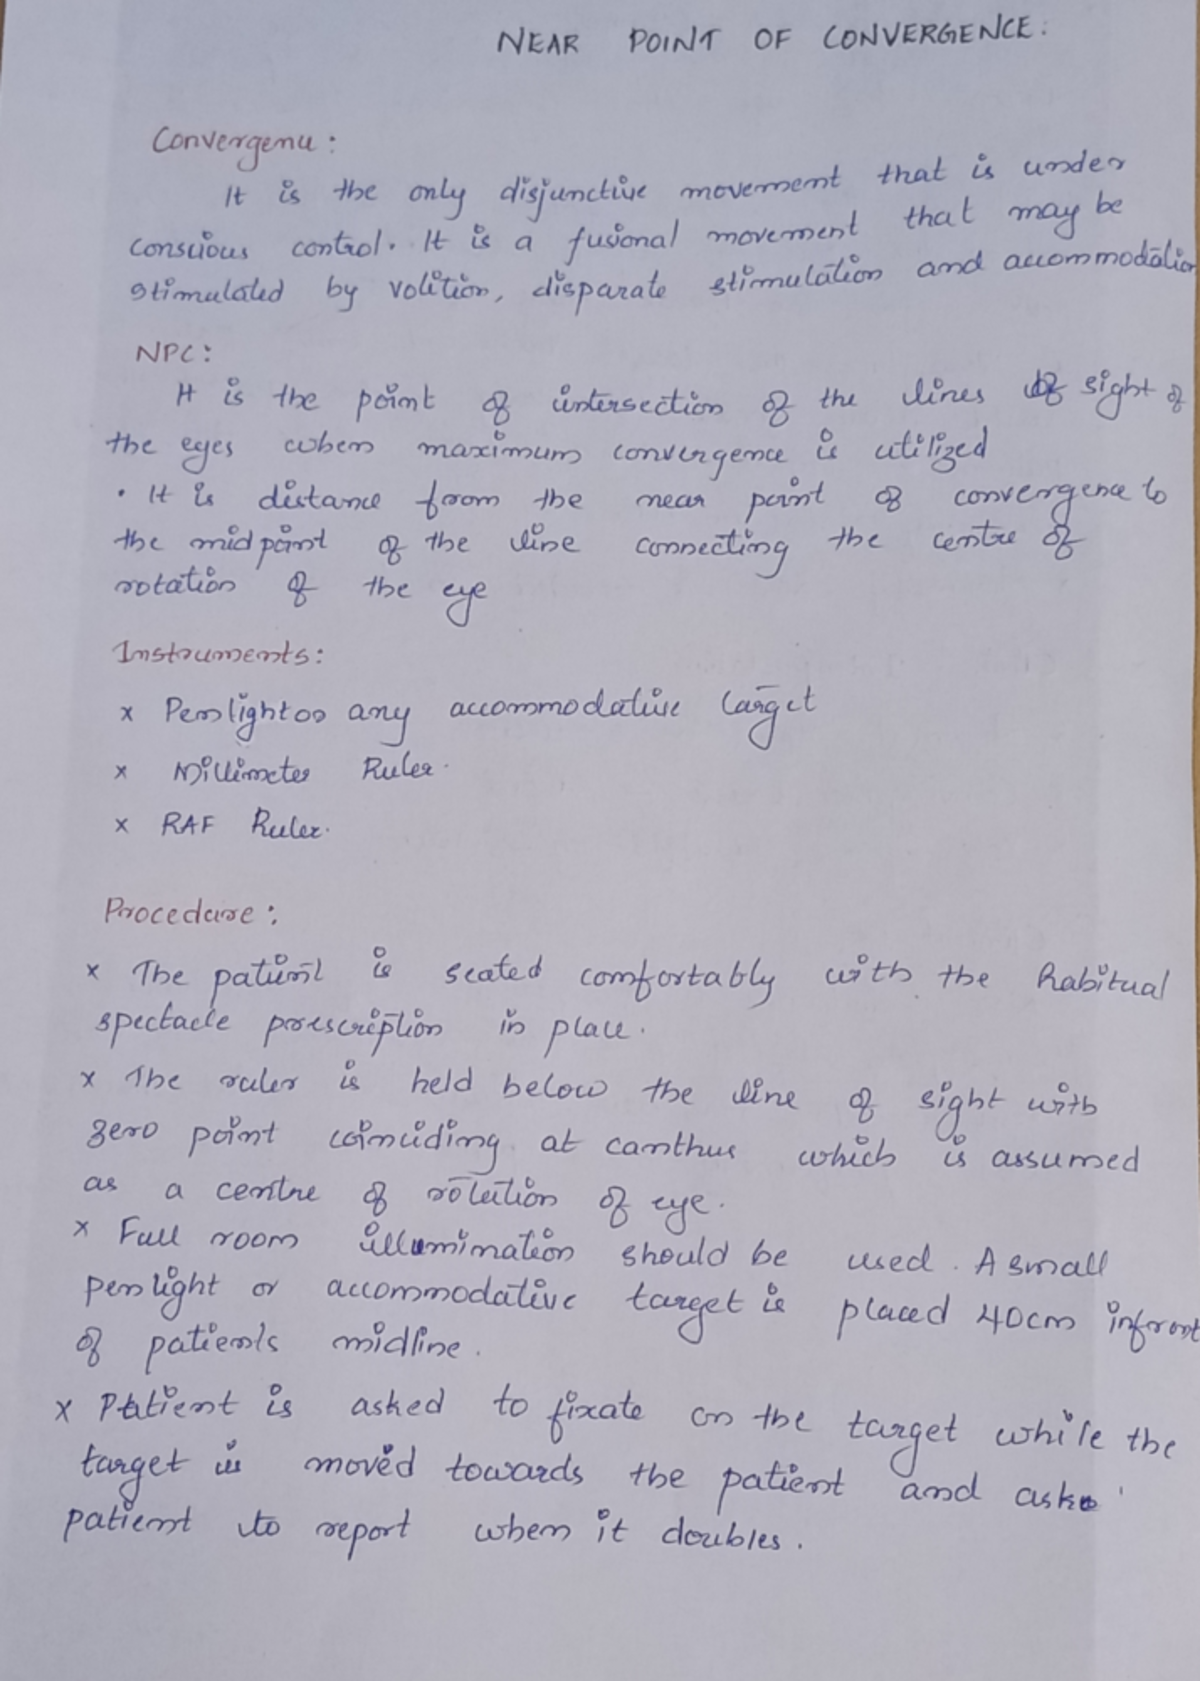 NEAR POINT OF CONVERGENCE:
Convergence:
It is the only disjunctive movement that is under
conscious control. It is a fusional movement that may be
stimulated by volition, disparate stimulation and accommodation
NPC:
It is the point of intersection of the lines of sight of
the eyes when maximum convergence is utilized
• It is distance from the near point of convergence to
the midpoint of the line connecting the centre of
rotation of the eye
Instruments:
x Penlight or any accommodative target
x Millimeter Ruler.
x RAF Ruler.
Procedure:
x The patient is seated comfortably with the habitual
spectacle prescription in place.
x The ruler is held below the line of sight with
zero point coinciding at canthus which is assumed
as a centre of rotation of eye.
x Full room illumination should be used. A small
penlight or accommodative target is placed 40cm infront
of patients midline.
x Patient is asked to fixate on the target while the
target is moved towards the patient and ask
patient to report when it doubles.